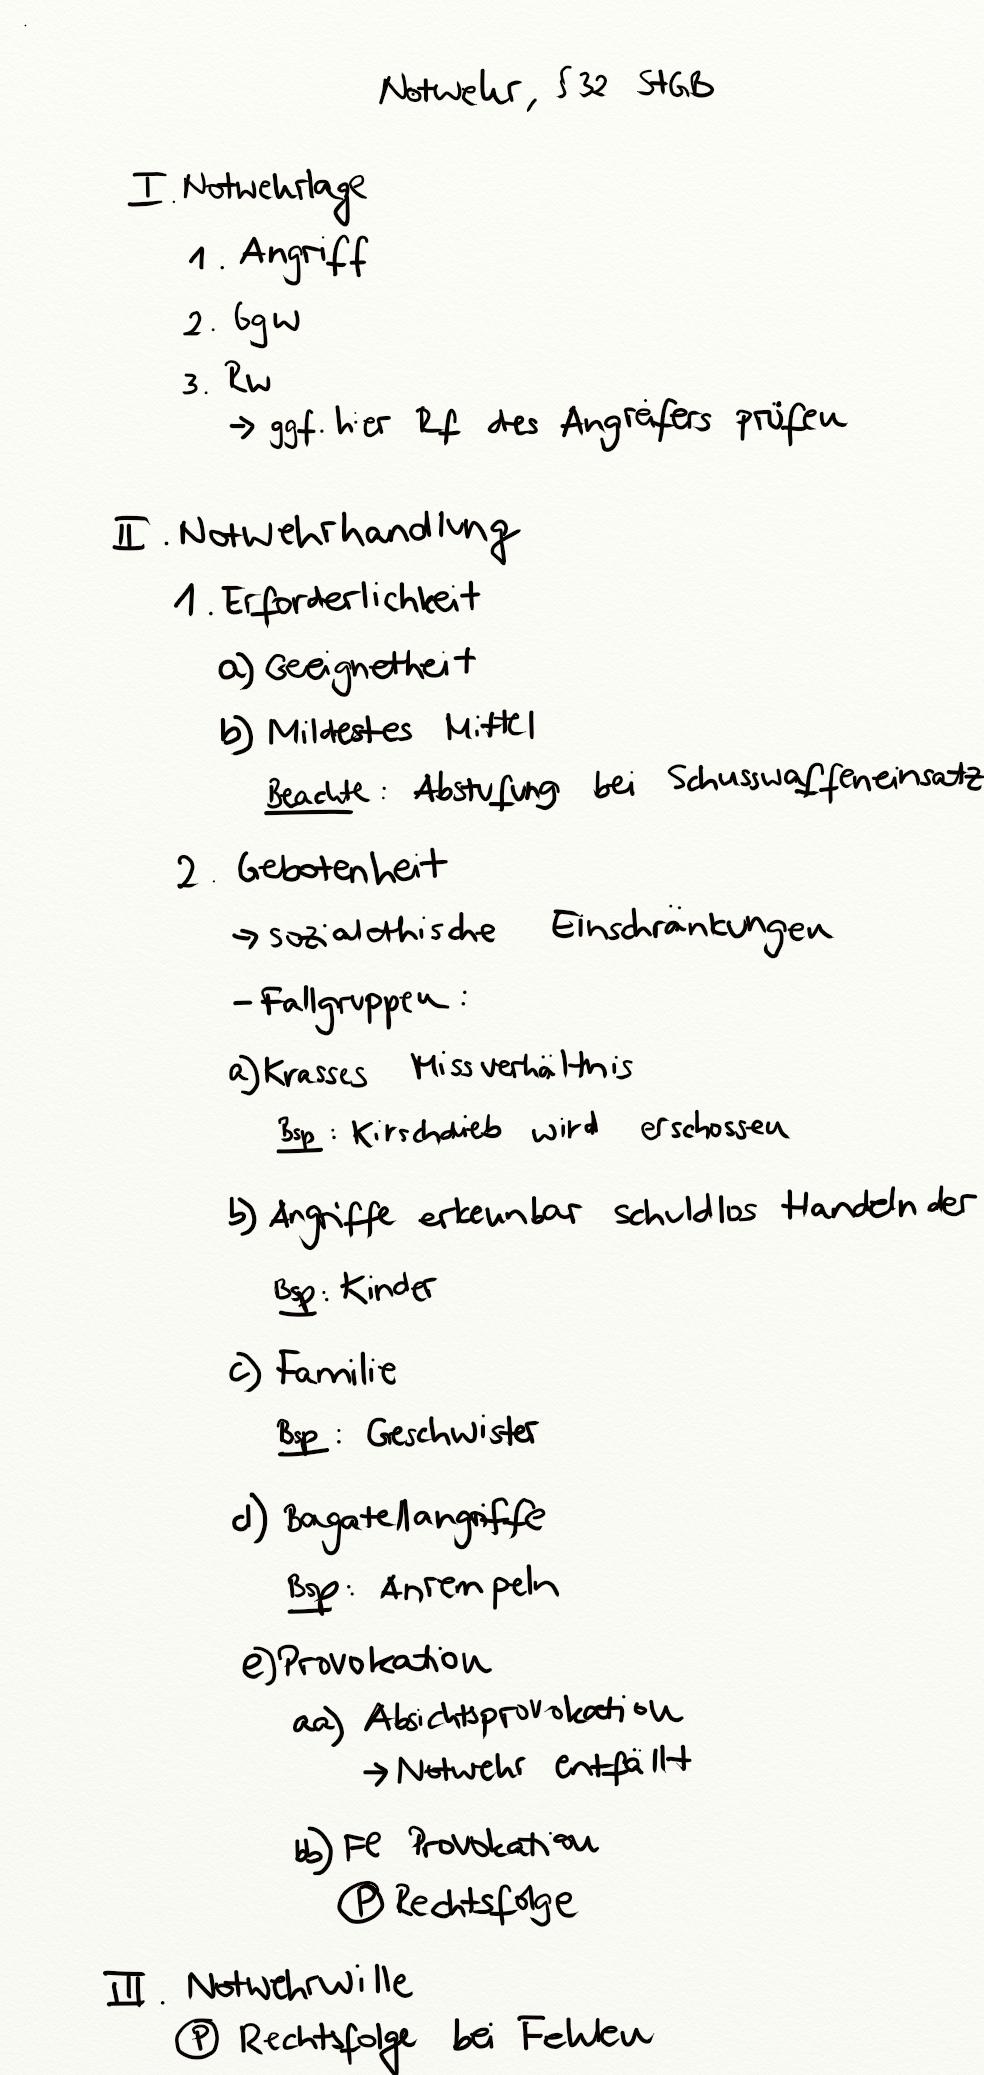 Notwehr, § 32 StGB
I. Notwehrlage
1. Angriff
2. Ggw
3. Rw
→ ggf. hier Rf des Angreifers prüfen
II. Notwehrhandlung
1. Erforderlichkeit
a) Geeignetheit
b) Mildestes Mittel
Beachte: Abstufung bei Schusswaffeneinsatz
2. Gebotenheit
→ sozialethische Einschränkungen
- Fallgruppen:
a) Krasses Missverhältnis
Bsp: Kirschdieb wird erschossen
b) Angriffe erkennbar schuldlos Handelnder
Bsp: Kinder
c) Familie
Bsp: Geschwister
d) Bagatellangriffe
Bsp: Anrempeln
e) Provokation
aa) Absichtsprovokation
→ Notwehr entfällt
bb) Fe Provokation
Ⓟ Rechtsfolge
III. Notwehrwille
Ⓟ Rechtsfolge bei Fehlen